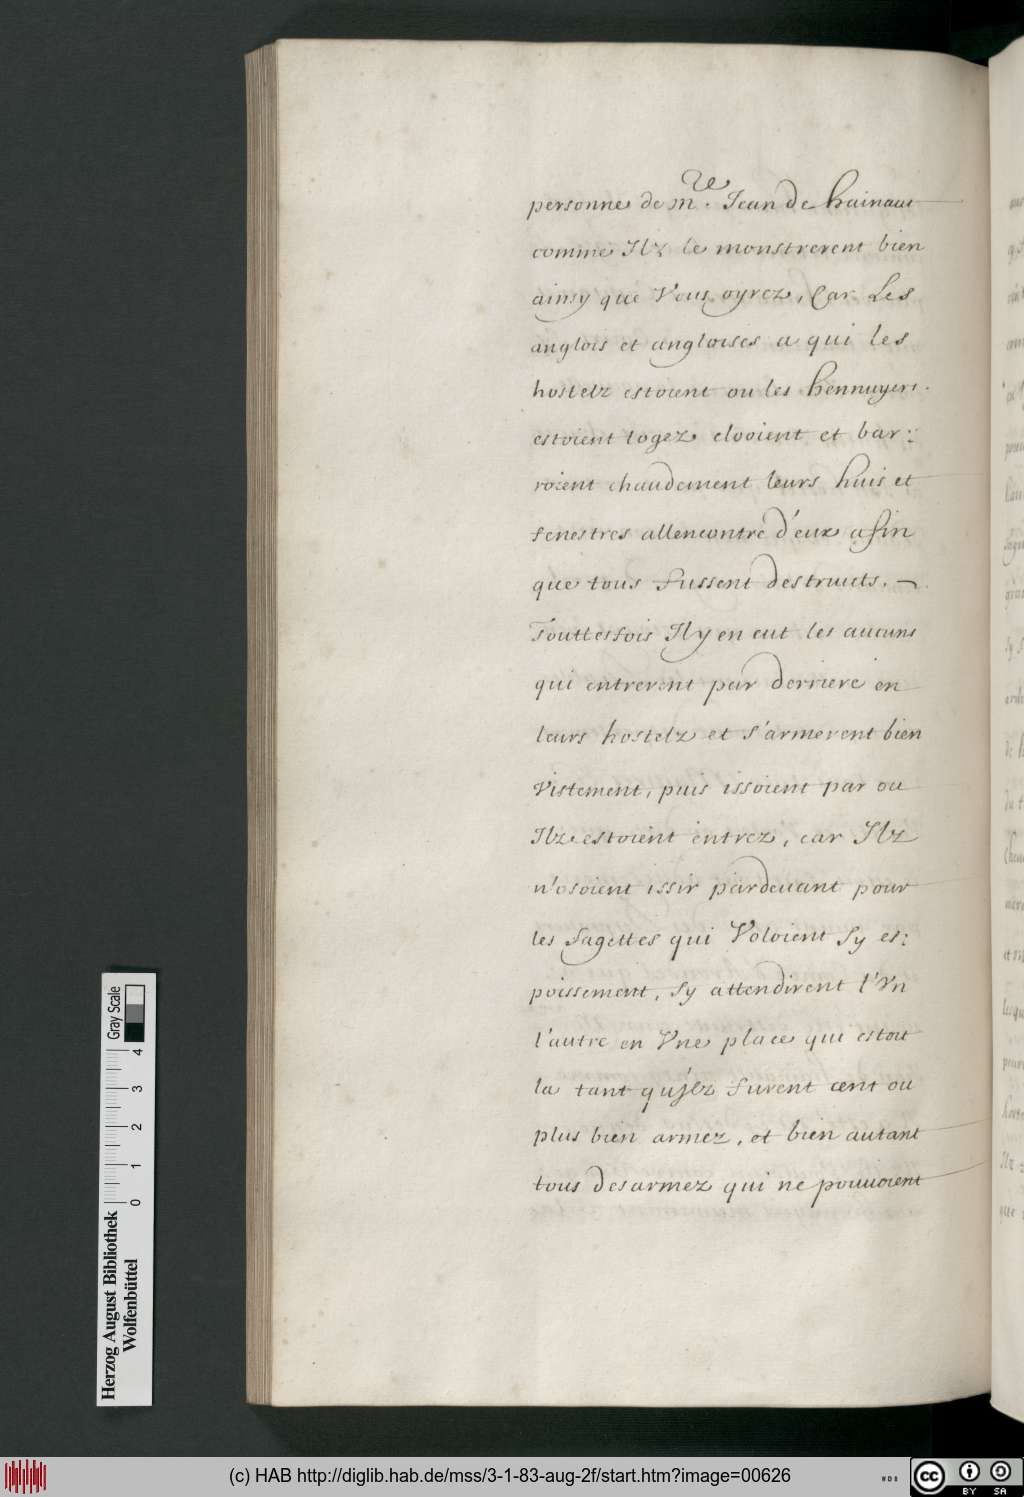 personne de m.re Jean de hainaut
comme Ilz le monstrerent bien
ainsy que Vous oyrez, Car Les
anglois et angloises a qui les
hostelz estoient ou les hennuyers.
estoient logez clooient et bar:
roient chaudement leurs huis et
fenestres allencontre d'eux afin
que tous fussent destruicts. —
Touttesfois Il y en eut les aucuns
qui entrerent par derriere en
leurs hostelz et s'armerent bien
vistement, puis issoient par ou
Ilz estoient entrez, car Ilz
n'osoient issir pardeuant pour
les sagettes qui Voloient sy es:
poissement, sy attendirent l'Vn
l'autre en Vne place qui estoit
la tant qu'jlz furent cent ou
plus bien armez, et bien autant
tous desarmez qui ne pouuoient
Gray Scale
0 1 2 3 4
Herzog August Bibliothek
Wolfenbüttel
(c) HAB http://diglib.hab.de/mss/3-1-83-aug-2f/start.htm?image=00626
WDB
cc BY SA